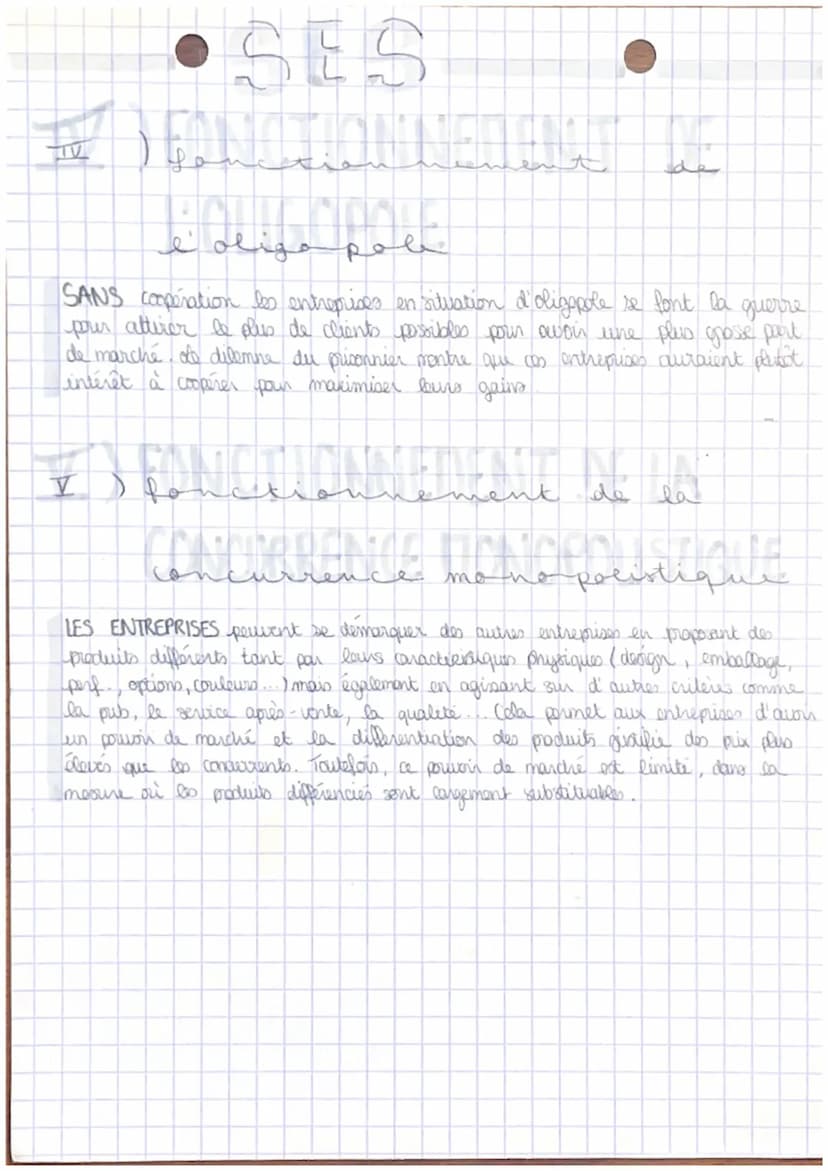 SES
IV ) fonctionnement de
l'oligopole
SANS coopération les entreprises en situation d'oligopole se font la guerre
pour attirer le plus de clients possibles pour avoir une plus grosse part
de marché. Le dilemne du prisonnier montre que ces entreprises auraient plutôt
intérêt à coopérer pour maximiser leurs gains
V ) fonctionnement de la
concurrence monopolistique
LES ENTREPRISES peuvent se démarquer des autres entreprises en proposant des
produits différents tant par leurs caractéristiques physiques (design, emballage,
perf., options, couleurs...) mais également en agissant sur d'autres critères comme
la pub, le service après-vente, la qualité... Cela permet aux entreprises d'avoir
un pouvoir de marché et la différentiation des produits justifie des prix plus
élevés que les concurrents. Toutefois, ce pouvoir de marché est limité, dans la
mesure où les produits différenciés sont largement substituables.